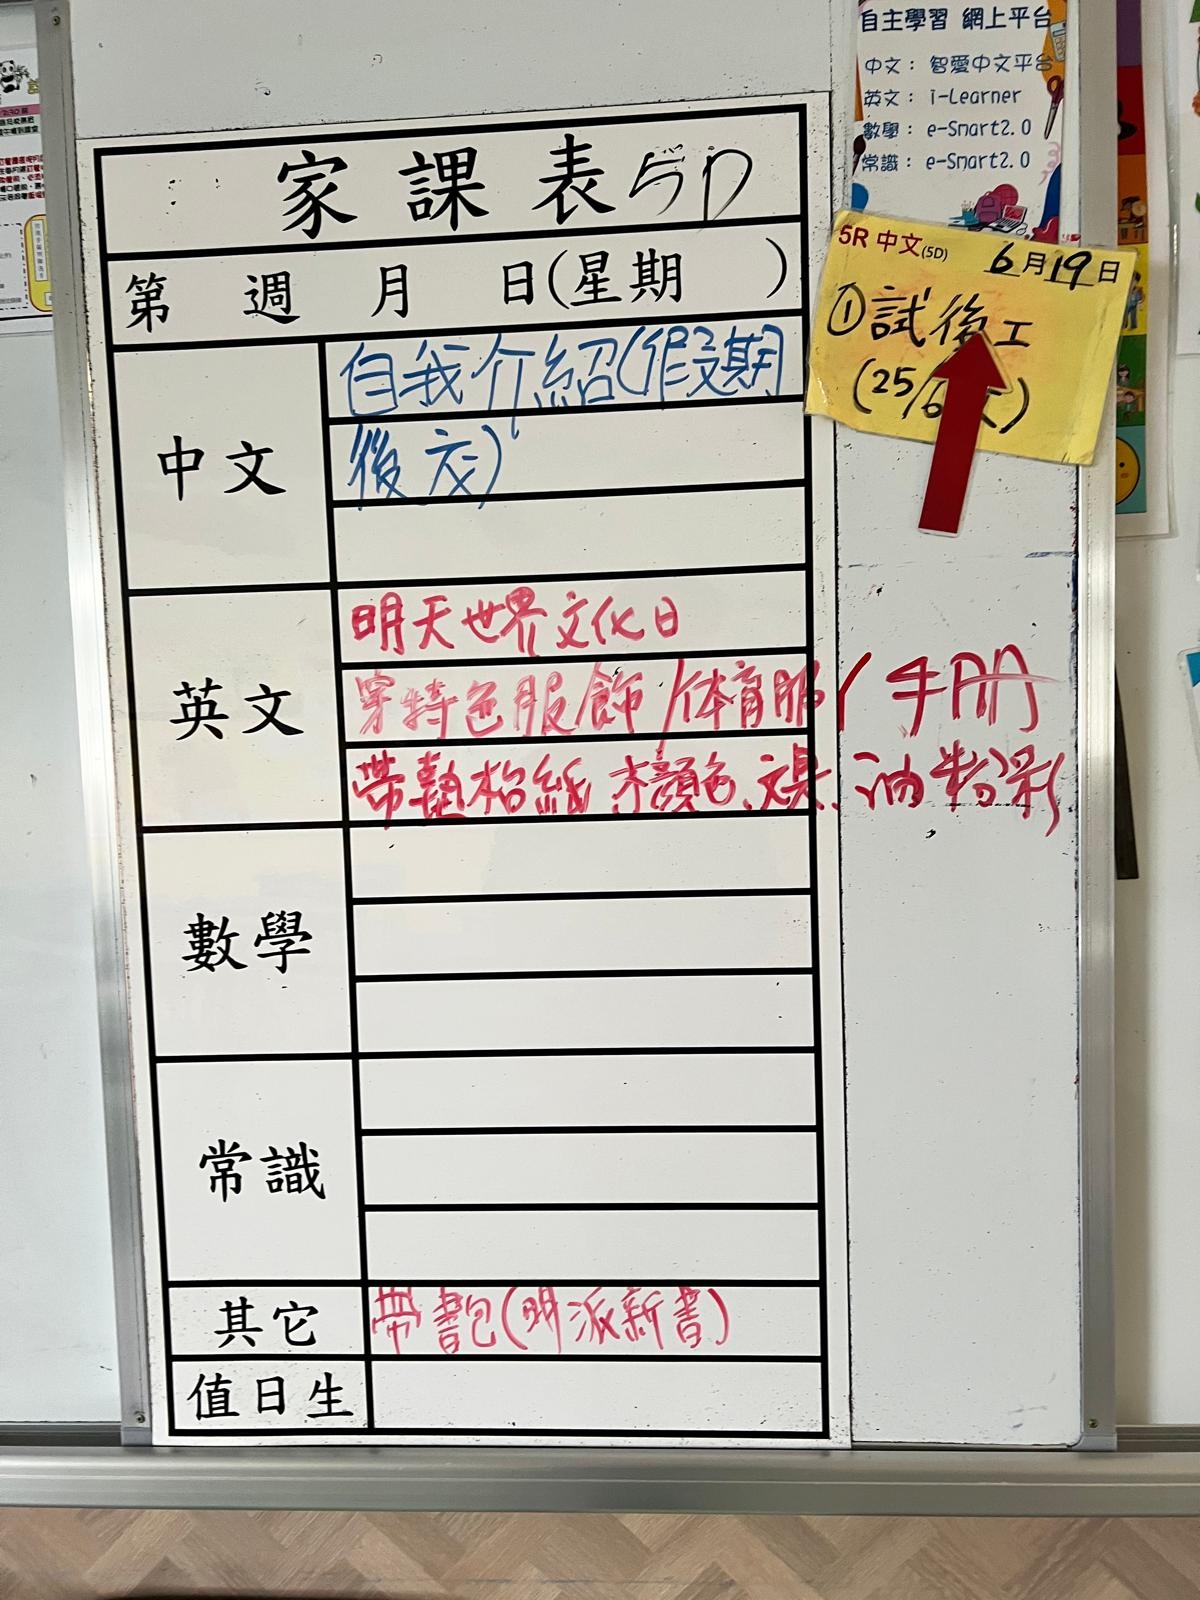 自主學習 網上平台
中文： 智愛中文平台
英文： i-Learner
數學： e-Smart2.0
常識： e-Smart2.0
家課表 5D
第 週 月 日(星期 )
5R 中文(5D) 6月19日
①試後工
(25/6
中文
自我介紹(假期
後交)
英文
明天世界文化日
穿特色服飾/体育服/手冊
帶墊枱紙、木顏色、文具、油粉彩
數學
常識
其它
帶書包(明派新書)
值日生